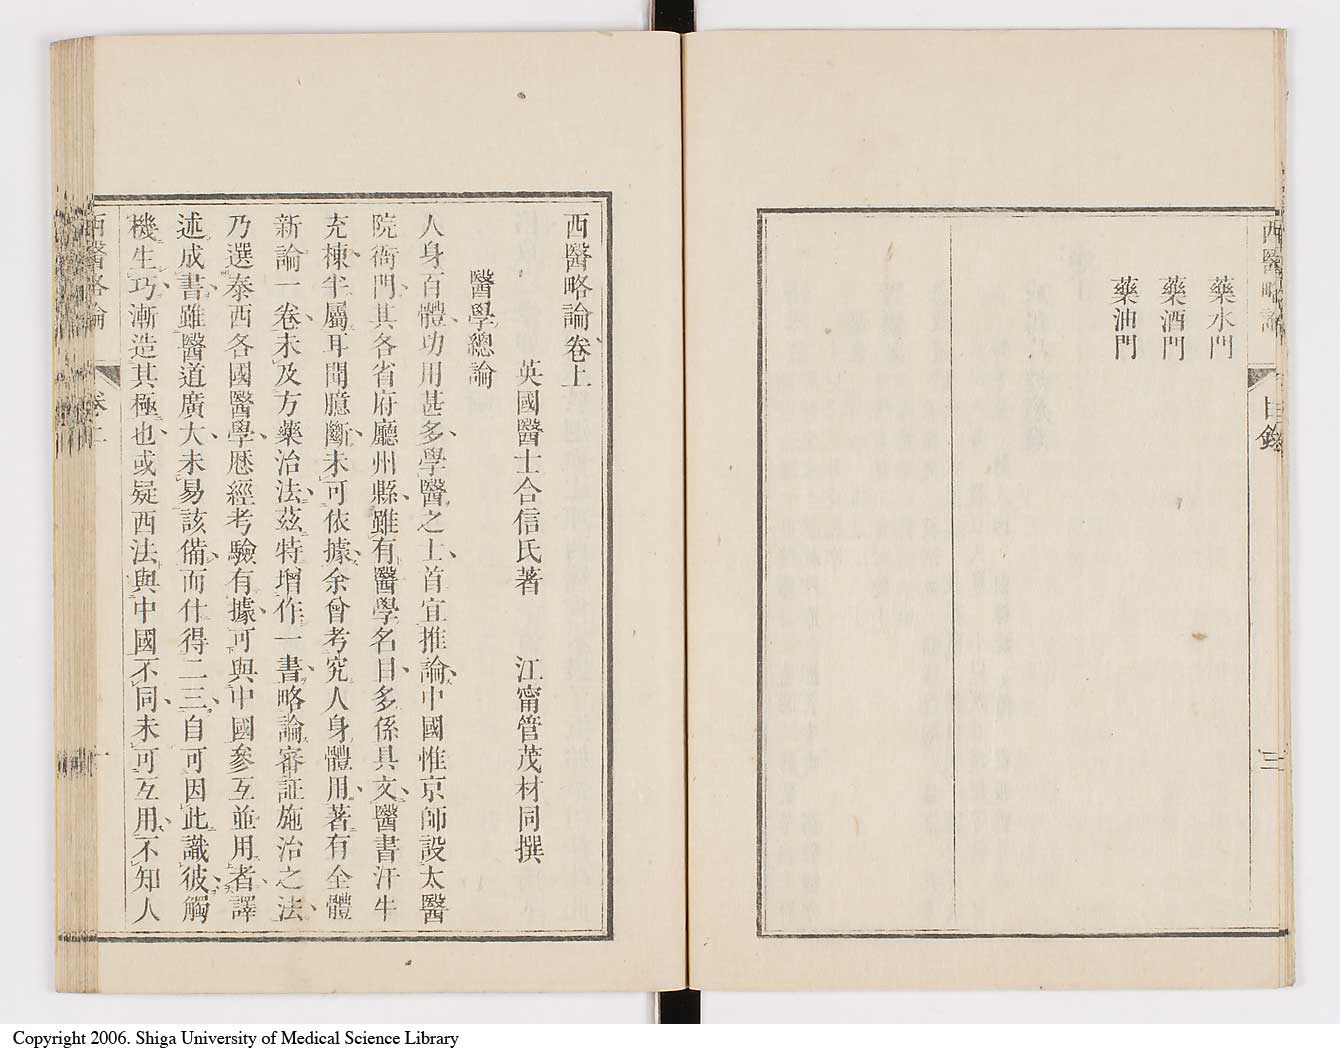 藥水門
藥酒門
藥油門
西醫略論
目錄
三
西醫略論卷上
英國醫士合信氏著 江甯管茂材同撰
醫學總論
人身百體功用甚多學醫之士首宜推論中國惟京師設太醫
院衙門其各省府廳州縣雖有醫學名目多係具文醫書汗牛
充棟半屬耳聞臆斷未可依據余曾考究人身體用著有全體
新論一卷未及方藥治法茲特增作一書略論審証施治之法
乃選泰西各國醫學歷經考驗有據可與中國參互並用者譯
述成書雖醫道廣大未易該備而什得二三自可因此識彼觸
機生巧漸造其極也或疑西法與中國不同未可互用不知人
西醫略論
卷上
一
Copyright 2006. Shiga University of Medical Science Library